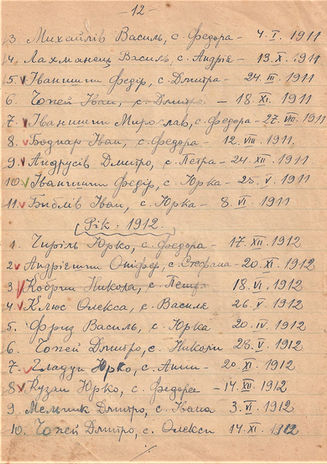 - 12 -
3. Михайлів Василь, с. Федора - 4. I. 1911
4. Лахманець Василь, с. Андрія - 13. X. 1911
5. v Іванишин Федір, с. Дмитра - 24. III. 1911
6. Чопей Іван, с. Дмитра - 18. XI. 1911
7. v Іванишин Мирослав, с. Федора - 27. VIII. 1911
8. v Боднар Іван, с. Федора - 12. VIII. 1911
9. v Андрусів Дмитро, с. Петра - 24. XII. 1911
10. v Іванишин Федір, с. Юрка - 25. V. 1911
11. v Іван, с. Юрка - 8. VI. 1911
[Рік: 1912.
1. Юрко, с. Федора - 17. XII. 1912
2. v Андріїшин Онуфер, с. Стефана - 20. XI. 1912
3. v Кобрин Микола, с. Петра 18. VI. 1912
4. v Клюс Олекса, с. Василя 26. V. 1912
5. Фриз Василь, с. Юрка 20. IV. 1912
6. Чопей Дмитро, с. 26. V. 1912
7. v Гладун Юрко, с. Анни - 20. XI. 1912
8. v Кузан Юрко, с. Федора - 14. XII. 1912
9. Мельник Дмитро, с. Івана 3. VI. 1912
10. Чопей Дмитро, с. Олекси 14. XI. 1912